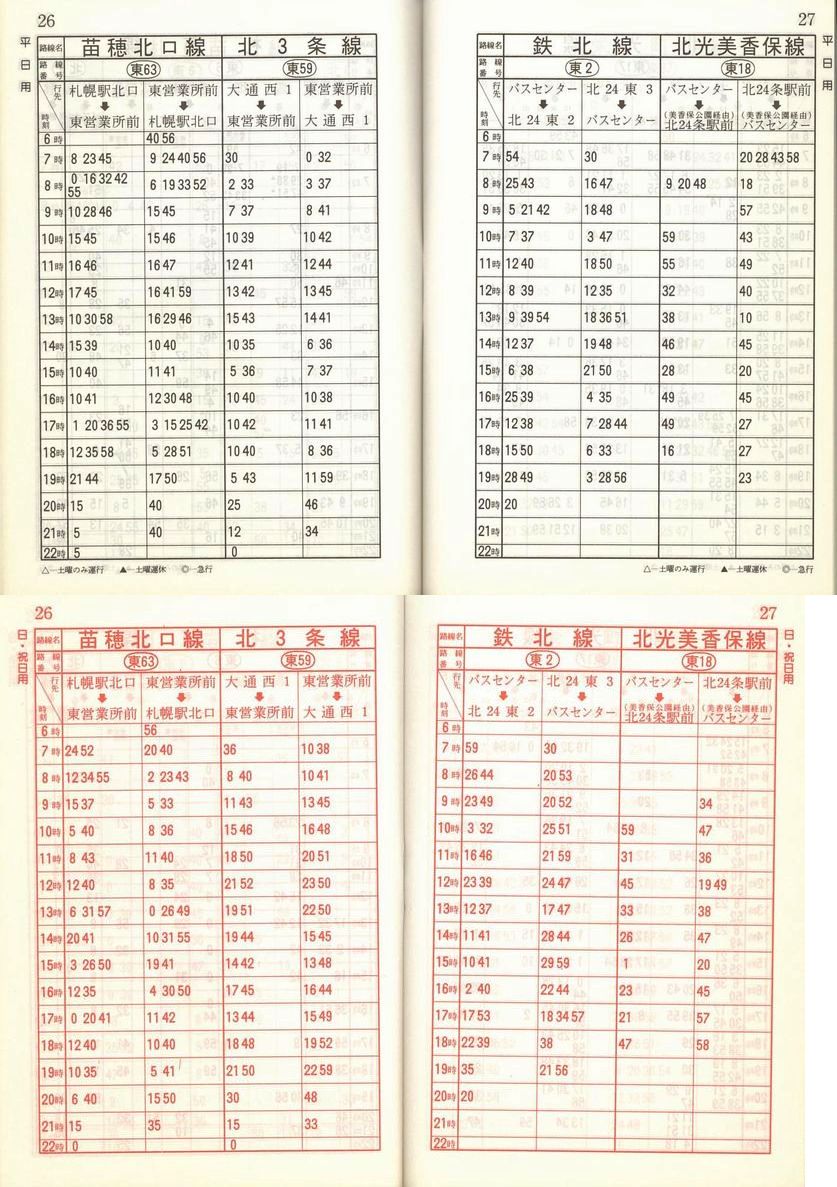 26
平日用
路線名 苗穂北口線 北3条線
路線番号 東63 東59
行先 札幌駅北口 東営業所前 大通西1 東営業所前
時刻 東営業所前 札幌駅北口 東営業所前 大通西1
6時 40 56
7時 8 23 45 9 24 40 56 30 0 32
8時 0 16 32 42 55 6 19 33 52 2 33 3 37
9時 10 28 46 15 45 7 37 8 41
10時 15 45 15 46 10 39 10 42
11時 16 46 16 47 12 41 12 44
12時 17 45 16 41 59 13 42 13 45
13時 10 30 58 16 29 46 15 43 14 41
14時 15 39 10 40 10 35 6 36
15時 10 40 11 41 5 36 7 37
16時 10 41 12 30 48 10 40 10 38
17時 1 20 36 55 3 15 25 42 10 42 11 41
18時 12 35 58 5 28 51 10 40 8 36
19時 21 44 17 50 5 43 11 59
20時 15 40 25 46
21時 5 40 12 34
22時 5 0
△―土曜のみ運行 ▲―土曜運休 ◎―急行
27
平日用
路線名 鉄北線 北光美香保線
路線番号 東2 東18
行先 バスセンター 北24東3 バスセンター 北24条駅前
時刻 北24東2 バスセンター (美香保公園経由)北24条駅前 (美香保公園経由)バスセンター
6時
7時 54 30 20 28 43 58
8時 25 43 16 47 9 20 48 18
9時 5 21 42 18 48 57
10時 7 37 3 47 59 43
11時 12 40 18 50 55 49
12時 8 39 12 35 32 40
13時 9 39 54 18 36 51 38 10
14時 12 37 19 48 46 45
15時 6 38 21 50 28 20
16時 25 39 4 35 49 45
17時 12 38 7 28 44 49 27
18時 15 50 6 33 16 27
19時 28 49 3 28 56 23
20時 20
21時
22時
△―土曜のみ運行 ▲―土曜運休 ◎―急行
26
日・祝日用
路線名 苗穂北口線 北3条線
路線番号 東63 東59
行先 札幌駅北口 東営業所前 大通西1 東営業所前
時刻 東営業所前 札幌駅北口 東営業所前 大通西1
6時 56
7時 24 52 20 40 36 10 38
8時 12 34 55 2 23 43 8 40 10 41
9時 15 37 5 33 11 43 13 45
10時 5 40 8 36 15 46 16 48
11時 8 43 11 40 18 50 20 51
12時 12 40 8 35 21 52 23 50
13時 6 31 57 0 26 49 19 51 22 50
14時 20 41 10 31 55 19 44 15 45
15時 3 26 50 19 41 14 42 13 48
16時 12 35 4 30 50 17 45 16 44
17時 0 20 41 11 42 13 44 15 49
18時 12 40 10 40 18 48 19 52
19時 10 35 5 41 21 50 22 59
20時 6 40 15 50 30 48
21時 15 35 15 33
22時 0 0
27
日・祝日用
路線名 鉄北線 北光美香保線
路線番号 東2 東18
行先 バスセンター 北24東3 バスセンター 北24条駅前
時刻 北24東2 バスセンター (美香保公園経由)北24条駅前 (美香保公園経由)バスセンター
6時
7時 59 30
8時 26 44 20 53
9時 23 49 20 52 34
10時 3 32 25 51 59 47
11時 16 46 21 59 31 36
12時 23 39 24 47 45 19 49
13時 12 37 17 47 33 38
14時 11 41 28 44 26 47
15時 10 41 29 59 1 20
16時 2 40 22 44 23 45
17時 17 53 18 34 57 21 57
18時 22 39 38 47 58
19時 35 21 56
20時 20
21時
22時